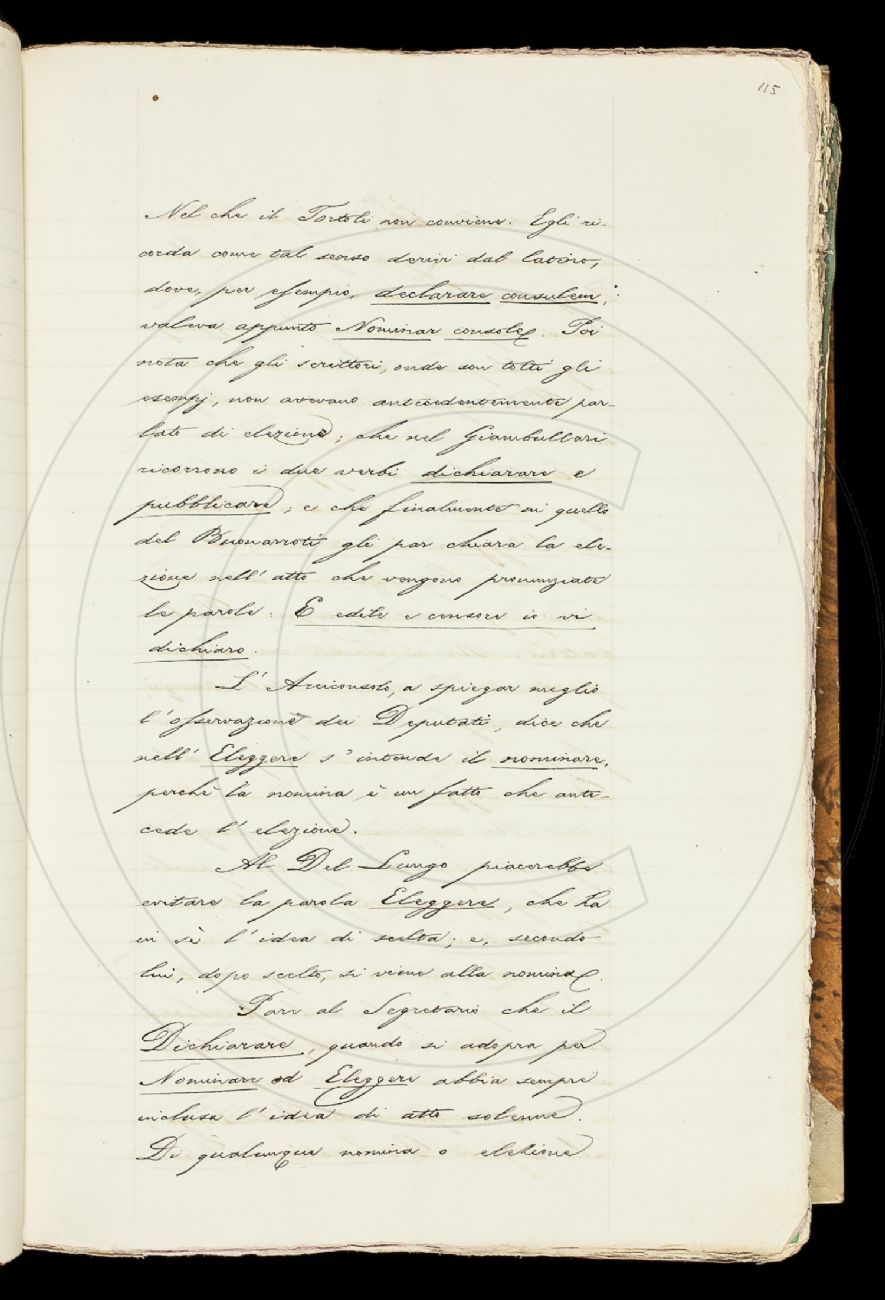 115
Nel che il Tortoli non conviene. Egli ri-
corda come tal senso derivi dal latino,
dove, per esempio, declarare consulem,
valeva appunto Nominar console. Poi
nota che gli scrittori, onde son tolti gli
esempj, non avevano antecedentemente par-
lato di elezione; che nel Giambullari
ricorrono i due verbi dichiarare e
pubblicare; e che finalmente in quello
del Buonarroti gli par chiara la ele-
zione nell' atto che vengono pronunziate
le parole: E edile e censore io vi
dichiaro.
L' Arciconsolo, a spiegar meglio
l' osservazione dei Deputati, dice che
nell' Eleggere s' intende il nominare,
perchè la nomina è un fatto che ante-
cede l' elezione.
Al Del Lungo piacerebbe
evitare la parola Eleggere, che ha
in sè l' idea di scelta; e, secondo
lui, dopo scelto, si viene alla nomina.
Parv al Segretario che il
Dichiarare, quando si adopra per
Nominare od Eleggere abbia sempre
inclusa l' idea di atto solenne.
Di qualunque nomina o elezione